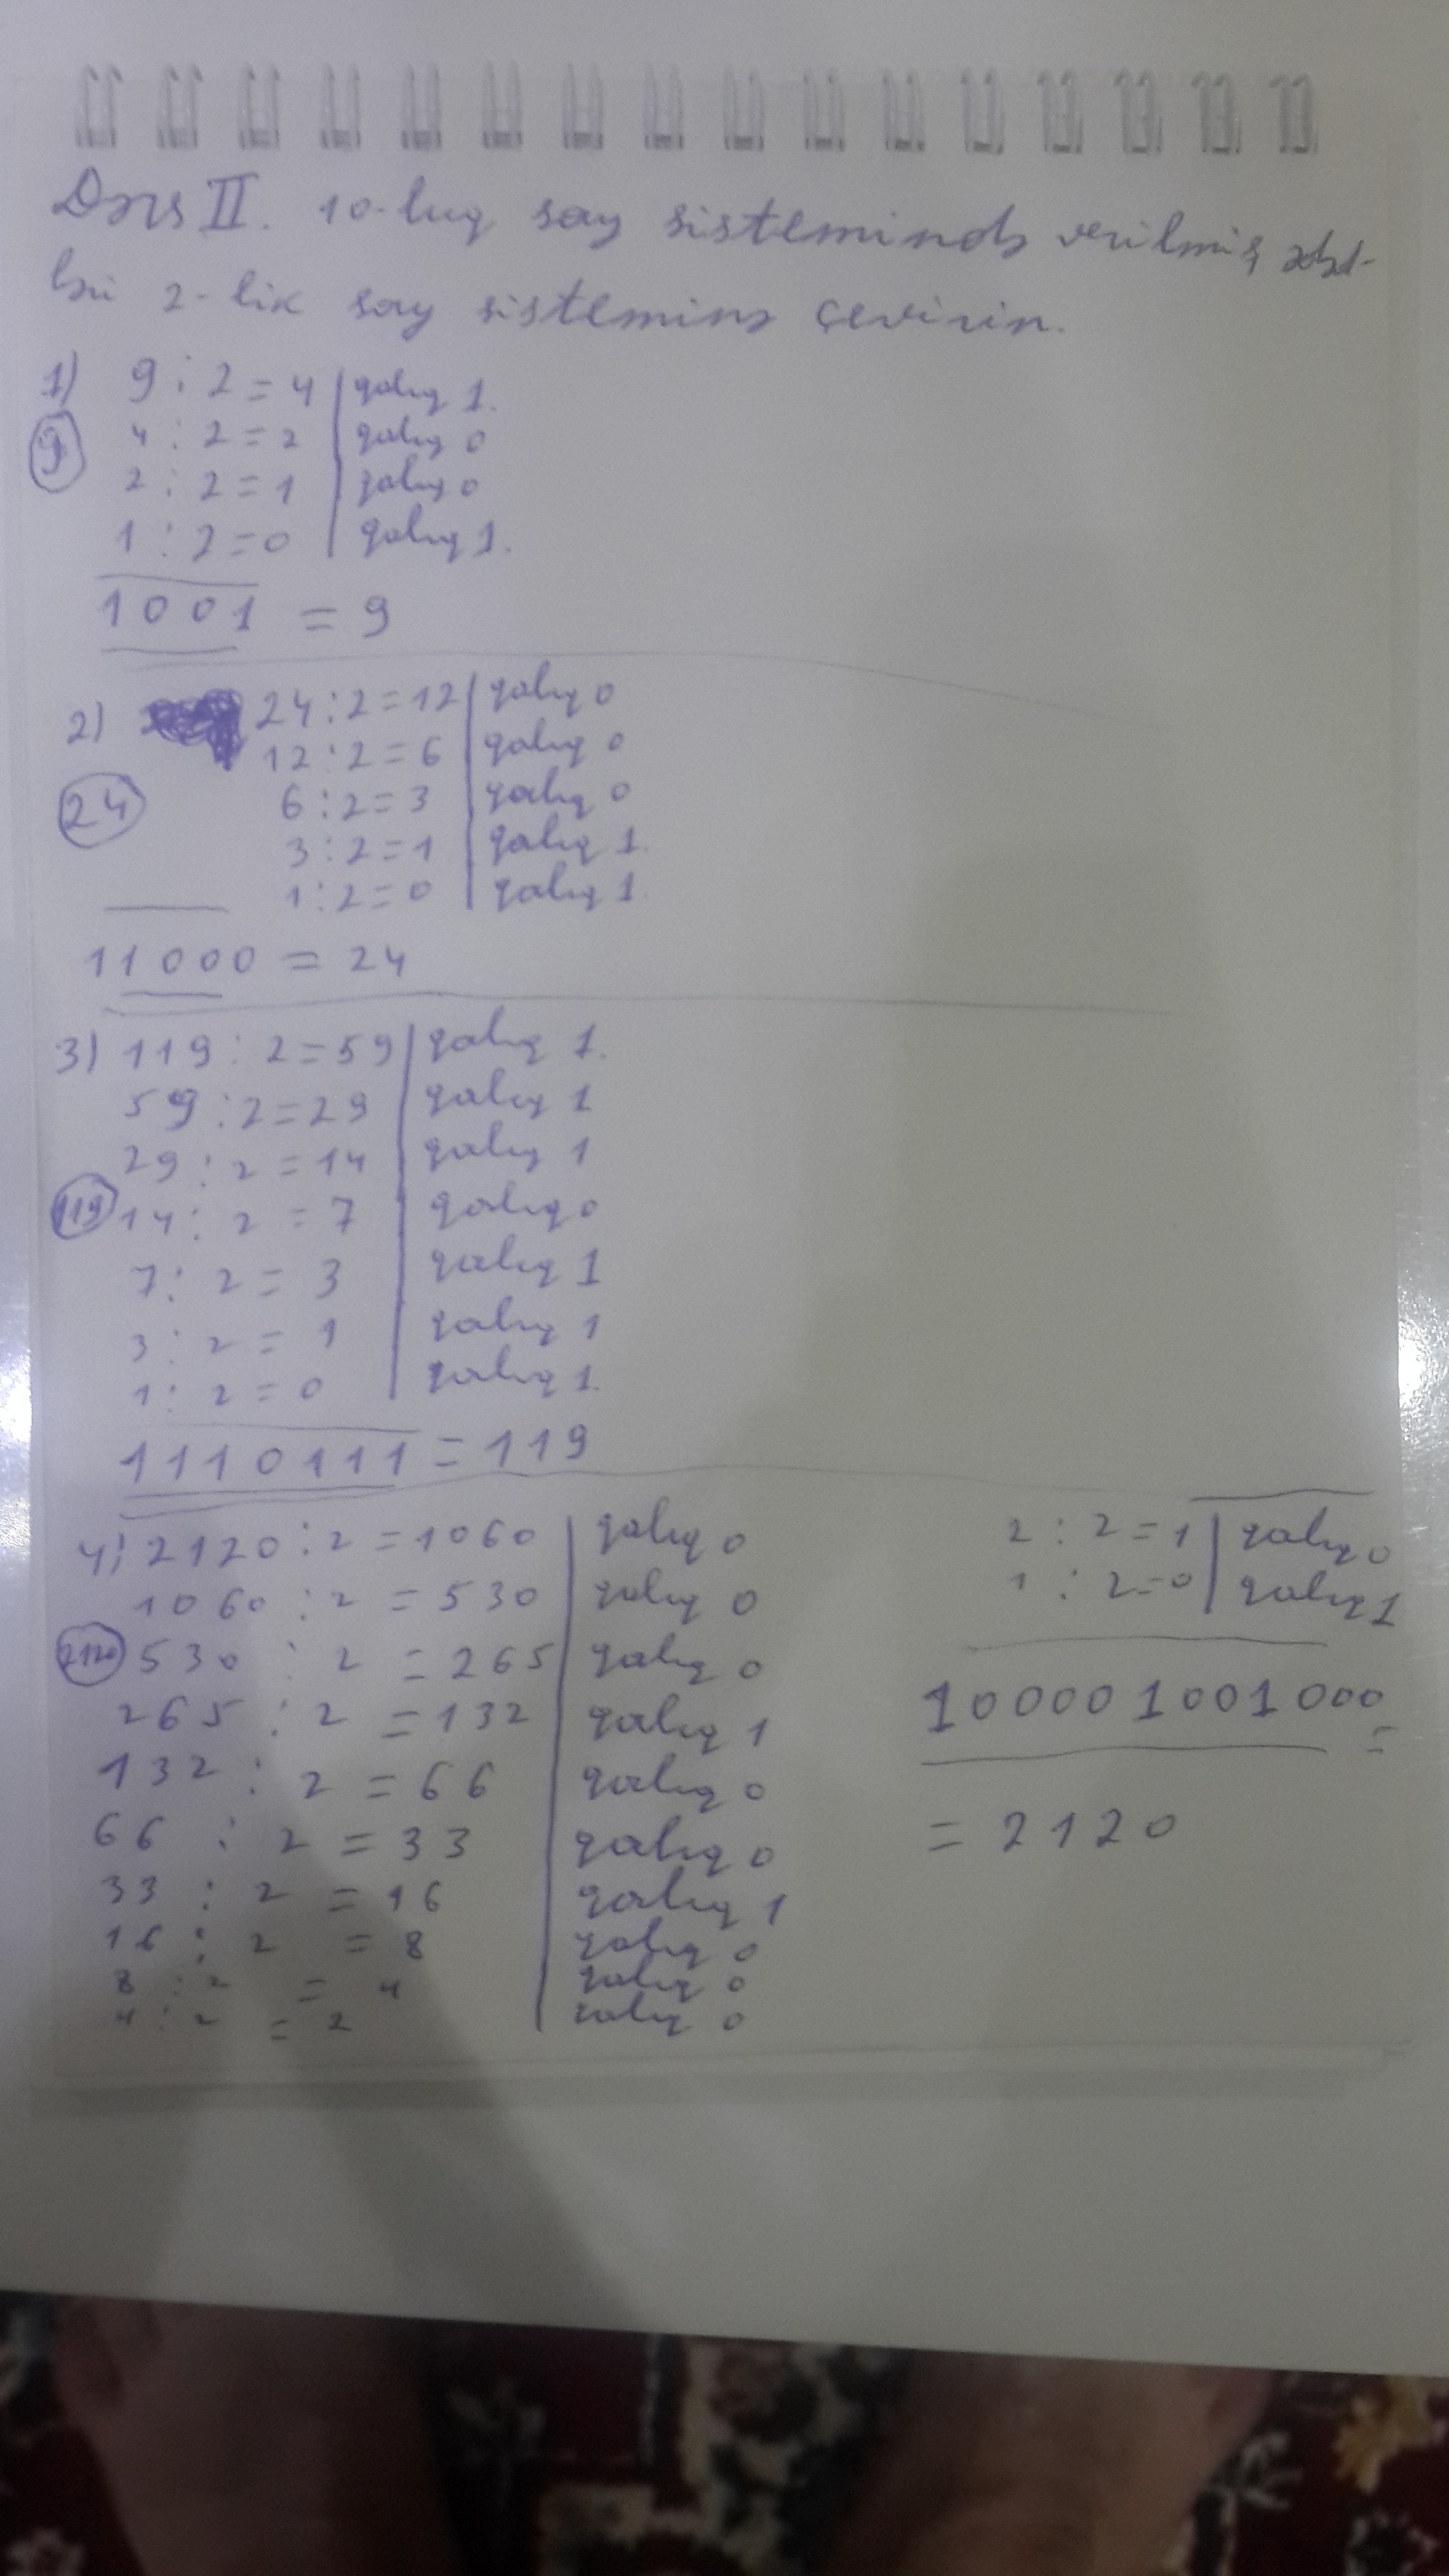 Dərs II. 10-luq say sistemində verilmiş ədəd-
ləri 2-lik say sisteminə çevirin.
1) 9 : 2 = 4 | qalıq 1.
9
4 : 2 = 2 | qalıq 0
2 : 2 = 1 | qalıq 0
1 : 2 = 0 | qalıq 1.
1001 = 9
2) 24 : 2 = 12 | qalıq 0
12 : 2 = 6 | qalıq 0
24
6 : 2 = 3 | qalıq 0
3 : 2 = 1 | qalıq 1.
1 : 2 = 0 | qalıq 1.
11000 = 24
3) 119 : 2 = 59 | qalıq 1.
59 : 2 = 29 | qalıq 1
29 : 2 = 14 | qalıq 1
119
14 : 2 = 7 | qalıq 0
7 : 2 = 3 | qalıq 1
3 : 2 = 1 | qalıq 1
1 : 2 = 0 | qalıq 1.
1110111 = 119
4) 2120 : 2 = 1060 | qalıq 0
1060 : 2 = 530 | qalıq 0
2120
530 : 2 = 265 | qalıq 0
265 : 2 = 132 | qalıq 1
132 : 2 = 66 | qalıq 0
66 : 2 = 33 | qalıq 0
33 : 2 = 16 | qalıq 1
16 : 2 = 8 | qalıq 0
8 : 2 = 4 | qalıq 0
4 : 2 = 2 | qalıq 0
2 : 2 = 1 | qalıq 0
1 : 2 = 0 | qalıq 1
100001001000 =
= 2120